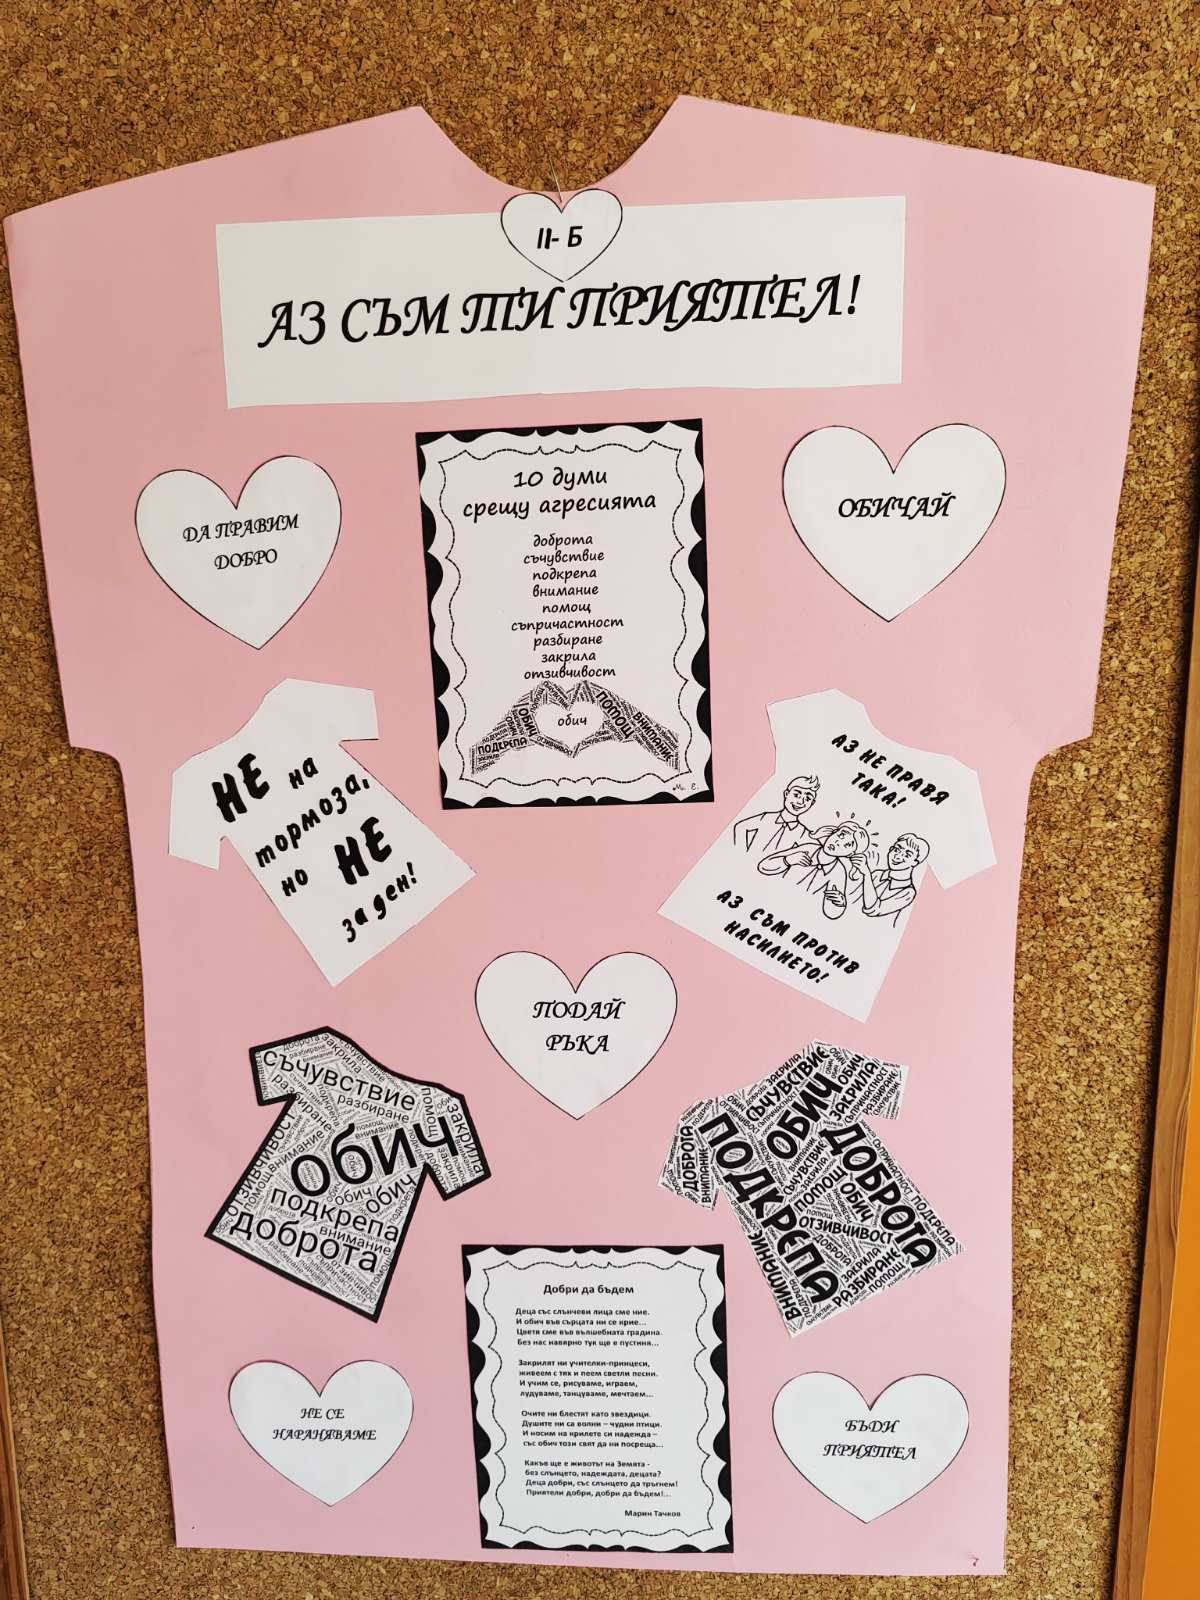 II- Б
АЗ СЪМ ТИ ПРИЯТЕЛ!
ДА ПРАВИМ
ДОБРО
10 думи
срещу агресията
доброта
съчувствие
подкрепа
внимание
помощ
съпричастност
разбиране
закрила
отзивчивост
обич
ОБИЧ
ПОДКРЕПА
ПОМОЩ
ВНИМАНИЕ
М. Е.
ОБИЧАЙ
НЕ на
тормоза,
но НЕ
за ден!
АЗ НЕ ПРАВЯ
ТАКА!
АЗ СЪМ ПРОТИВ
НАСИЛИЕТО!
ПОДАЙ
РЪКА
доброта
закрила
съчувствие
разбиране
помощ
закрила
отзивчивост
внимание
обич
подкрепа
обич
обич
внимание
доброта
ЗАКРИЛА
СЪЧУВСТВИЕ
ОБИЧ
ЗАКРИЛА
РАЗБИРАНЕ
ДОБРОТА
ВНИМАНИЕ
ПОДКРЕПА
ОБИЧ
ДОБРОТА
СЪПРИЧАСТНОСТ
ПОДКРЕПА
ПОМОЩ
ОБИЧ
ОТЗИВЧИВОСТ
ВНИМАНИЕ
ЗАКРИЛА
РАЗБИРАНЕ
ПОМОЩ
Добри да бъдем
Деца със слънчеви лица сме ние.
И обич във сърцата ни се крие...
Цветя сме във вълшебната градина.
Без нас навярно тук ще е пустиня...
Закрилят ни учителки-принцеси,
живеем с тях и пеем светли песни.
И учим се, рисуваме, играем,
лудуваме, танцуваме, мечтаем...
Очите ни блестят като звездици.
Душите ни са волни – чудни птици.
И носим на крилете си надежда –
със обич този свят да ни посреща...
Какъв ще е животът на Земята -
без слънцето, надеждата, децата?
Деца добри, със слънцето да тръгнем!
Приятели добри, добри да бъдем!...
Марин Тачков
НЕ СЕ
НАРАНЯВАМЕ
БЪДИ
ПРИЯТЕЛ